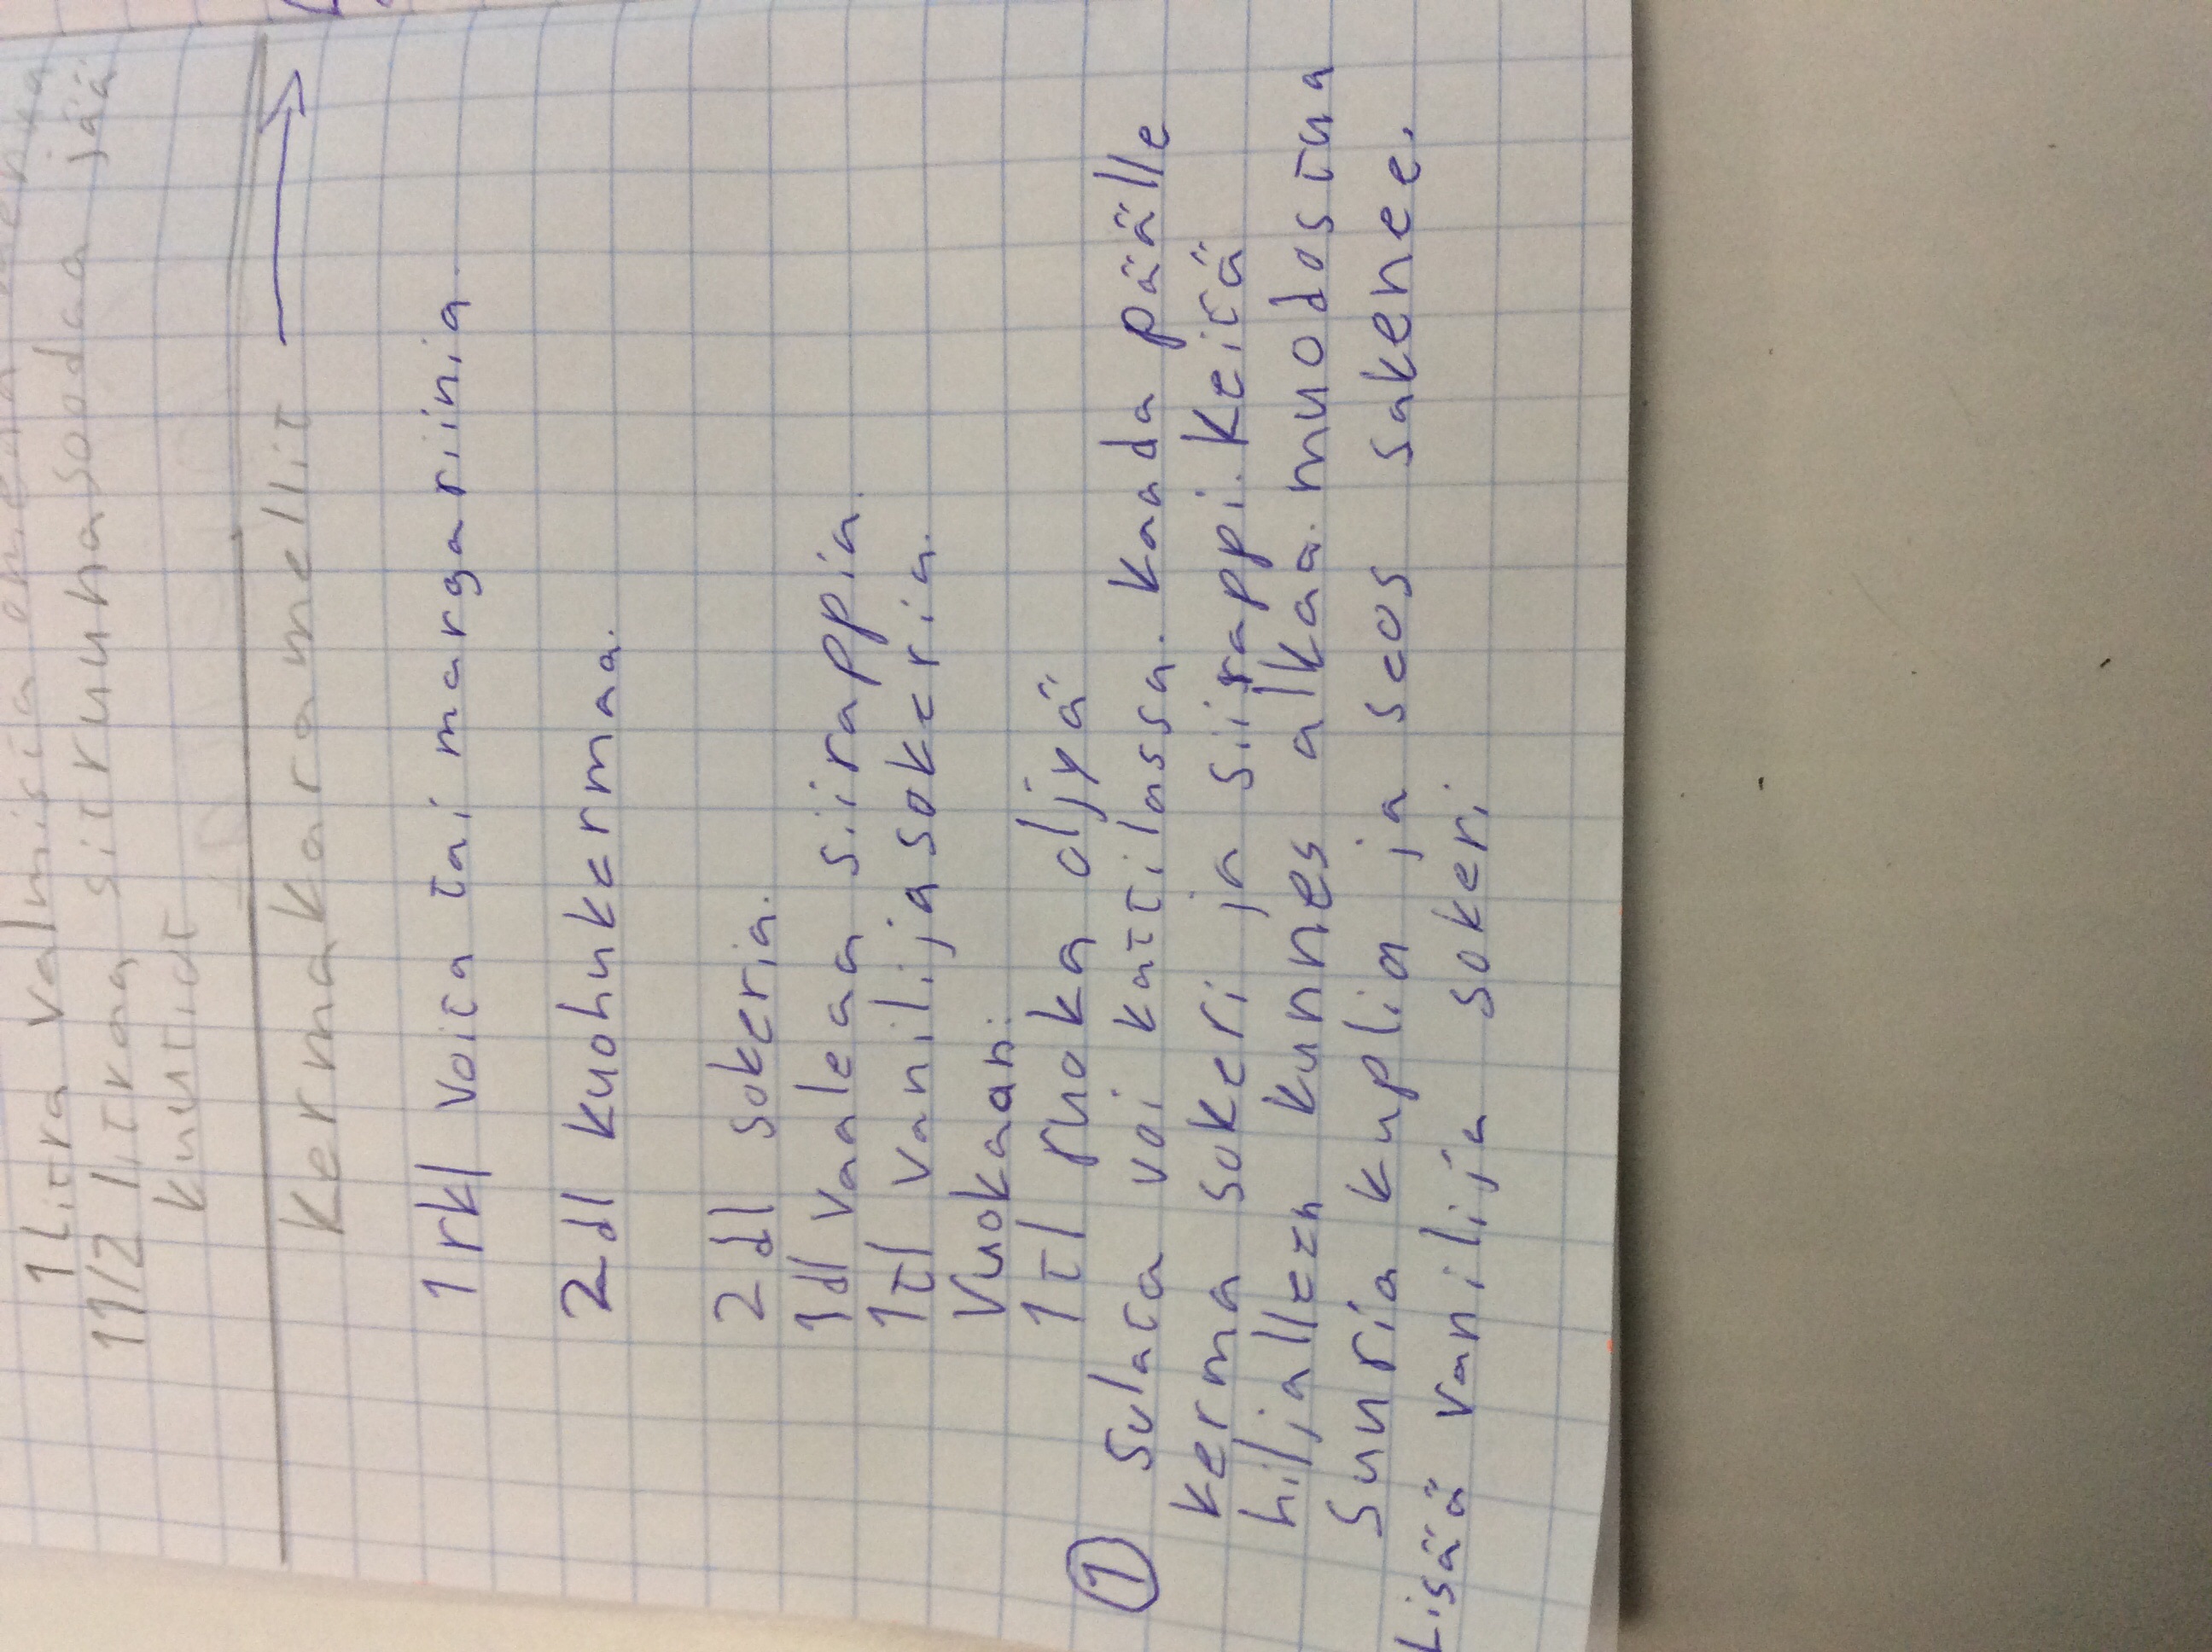 1 Litra valmista
11/2 litkaa sitruunasoodaa jää
kuutiot
Kermakaramellit →
1 rkl voita tai margariinia.
2 dl kuohukermaa.
2 dl sokeria.
1dl vaaleaa siirappia.
1tl vanilijasokeria.
Vuokaan:
1 tl ruoka oljyä
① Sulata voi kattilassa. kaada päälle
kerma sokeri ja siirappi. Keitä
hiljalleen kunnes alkaa. muodostua
Suuria kuplia ja seos sakenee.
Lisää vanilija sokeri